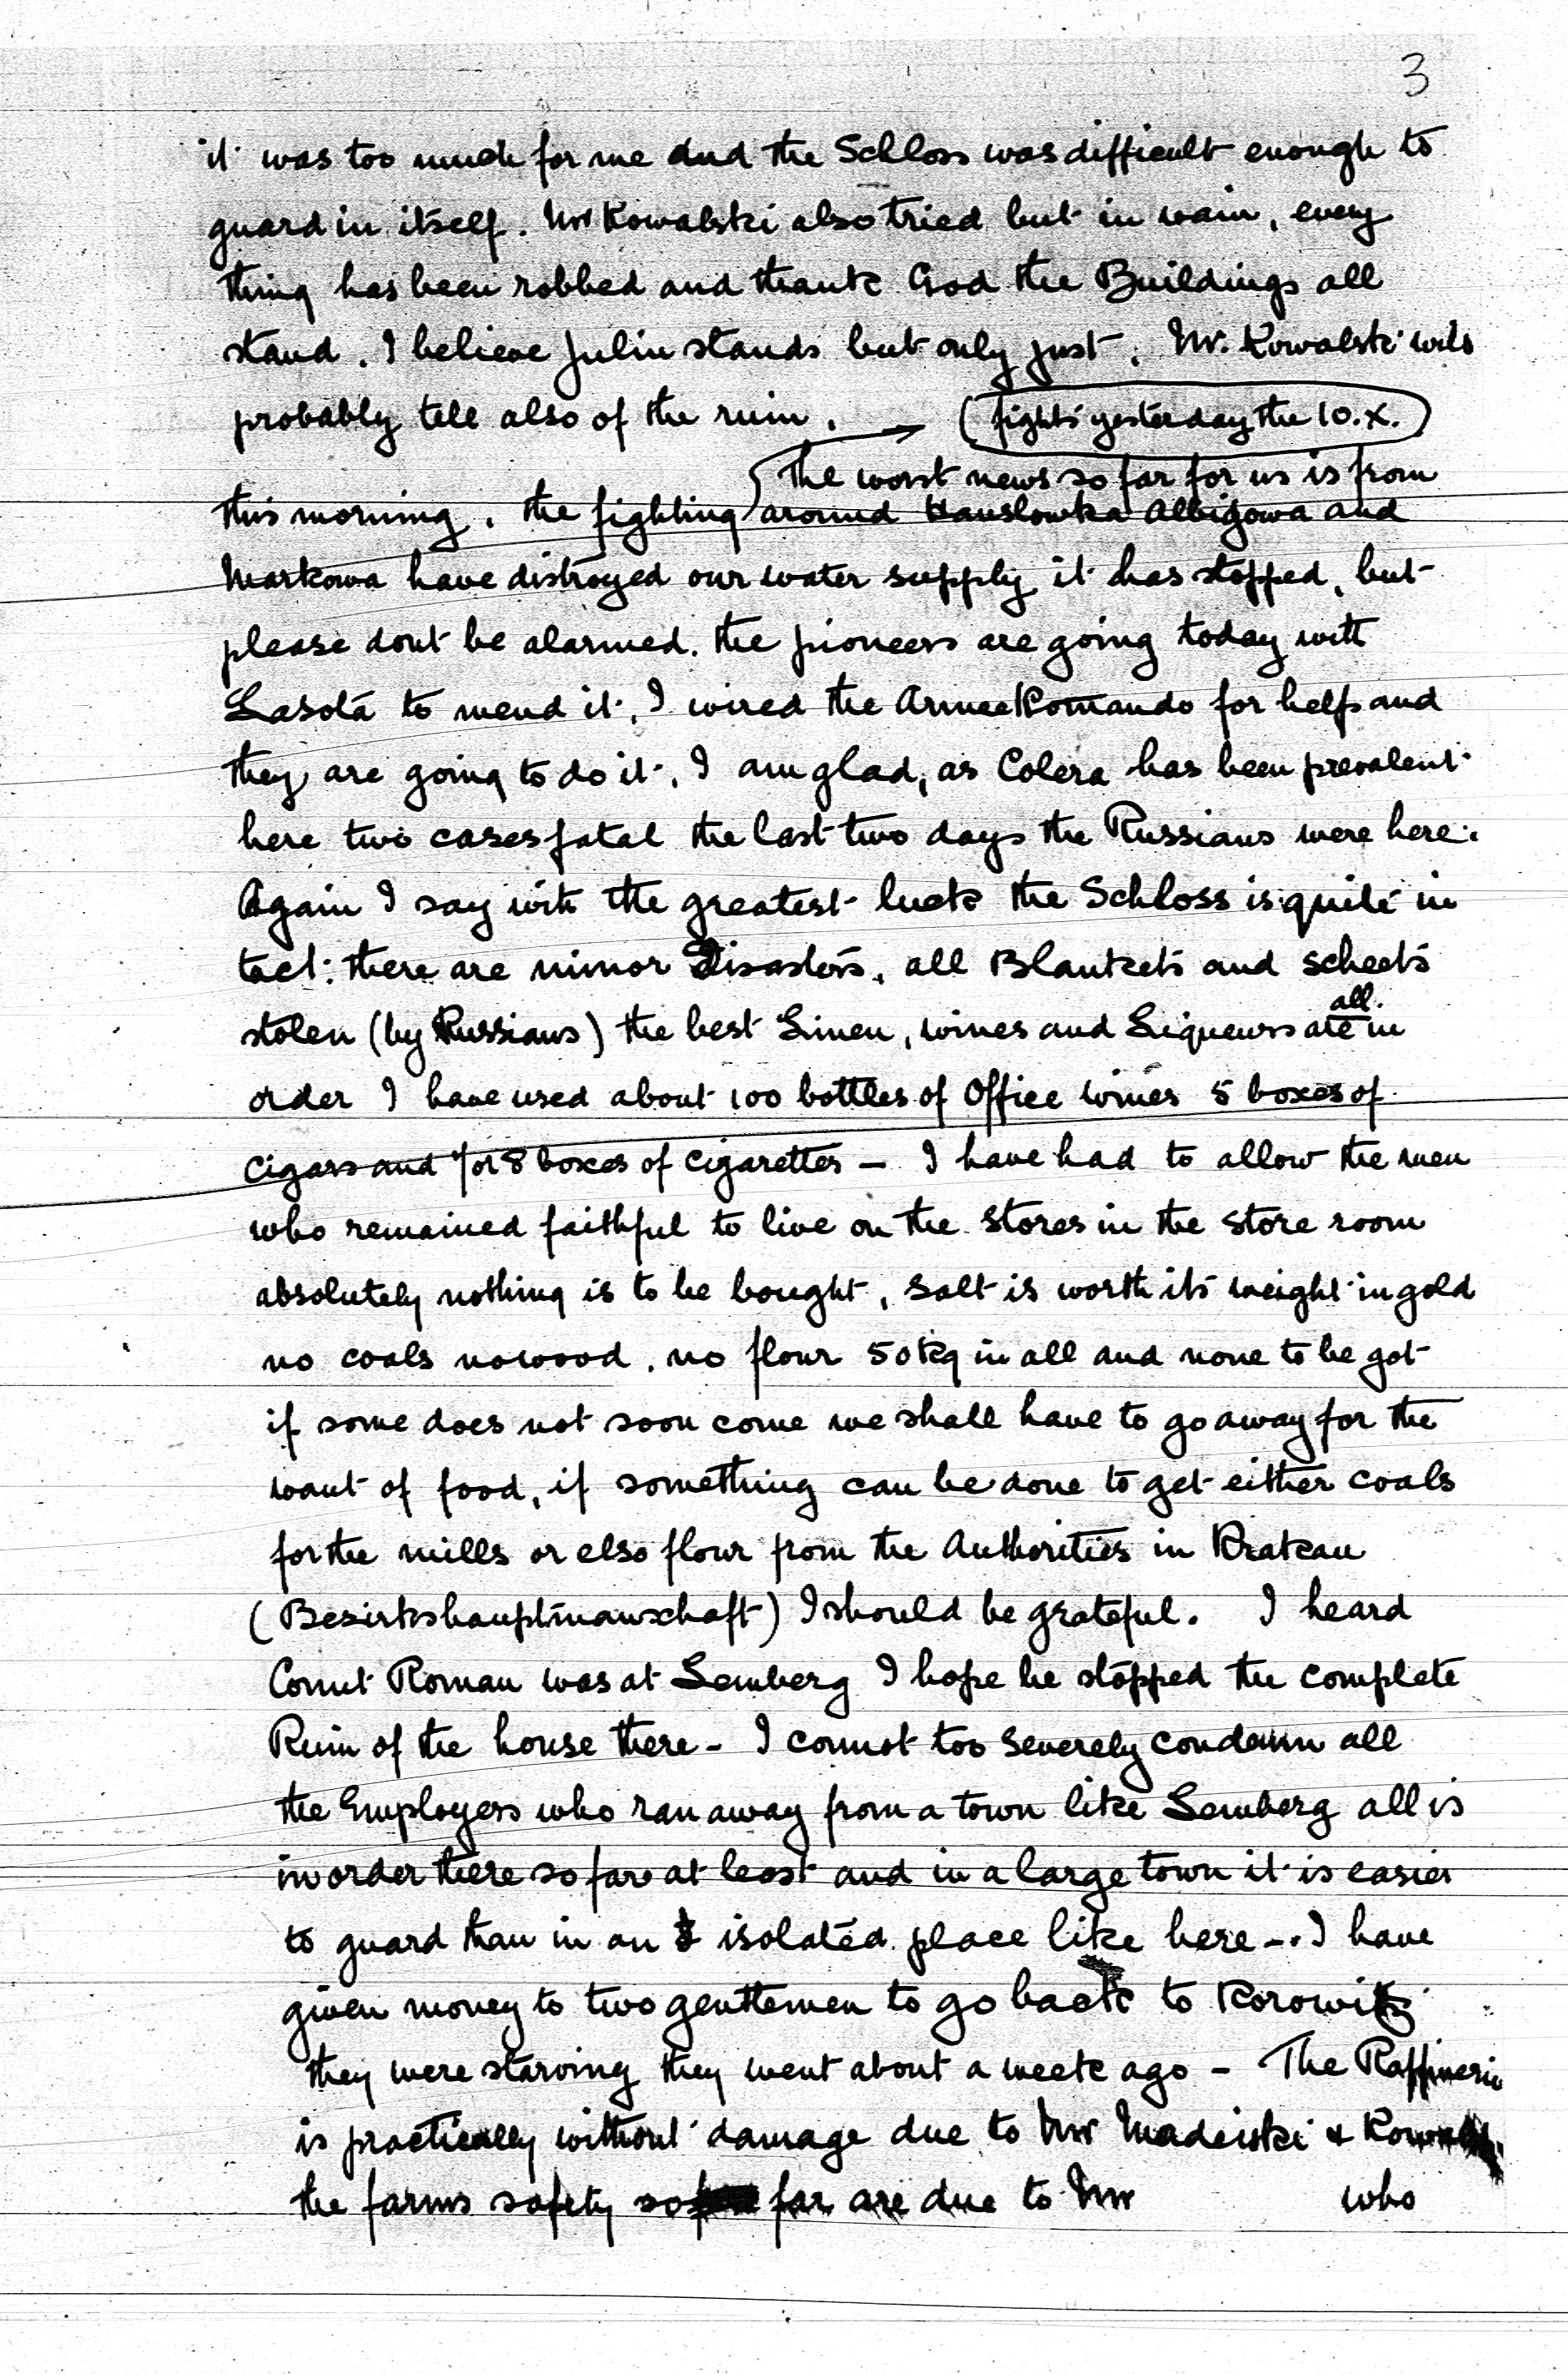 3
it was too much for me and the Schloss was difficult enough to
guard in itself. Mr Kowalski also tried but in vain, every
thing has been robbed and thank God the Buildings all
stand. I believe Julin stands but only just. Mr. Kowalski will
probably tell also of the ruin. (fights yesterday the 10.X.)
The worst news so far for us is from
this morning. the fighting around Hauslowka Albigowa and
Markowa have distroyed our water supply it has stopped, but
please dont be alarmed. the pioneers are going today with
Lasota to mend it. I wired the ArmeeKomando for help and
they are going to do it. I am glad, as Colera has been prevalent
here two cases fatal the last two days the Russians were here.
Again I say with the greatest luck the Schloss is quite in
tact: there are minor Disasters, all Blankets and scheets
stolen (by Russians) the best Linen, wines and Liqueurs are all. in
order I have used about 100 bottles of Office wines 5 boxes of
cigars and 7 or 8 boxes of cigarettes – I have had to allow the men
who remained faithful to live on the stores in the store room
absolutely nothing is to be bought, salt is worth its weight in gold
no coals no wood, no flour 50 kg in all and none to be got
if some does not soon come we shall have to go away for the
want of food, if something can be done to get either coals
for the mills or elso flour from the Authorities in Krakau
(Besirkshauptmanschaft) I should be grateful. I heard
Count Roman was at Lemberg I hope he stopped the complete
Ruin of the house there – I connot too severely condemn all
the Employers who ran away from a town like Lemberg all is
in order there so far at least and in a large town it is easier
to guard than in an isolated place like here –. I have
given money to two genttemen to go back to Korowitz
they were starving they went about a week ago – The Raffinerie
is practically without damage due to Mr Madeiski &
the farms safety so far are due to Mr who